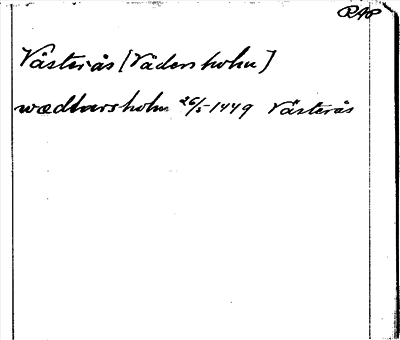 RAP
Västerås [Vädersholm]
wædhersholm 26/5-1449 Västerås